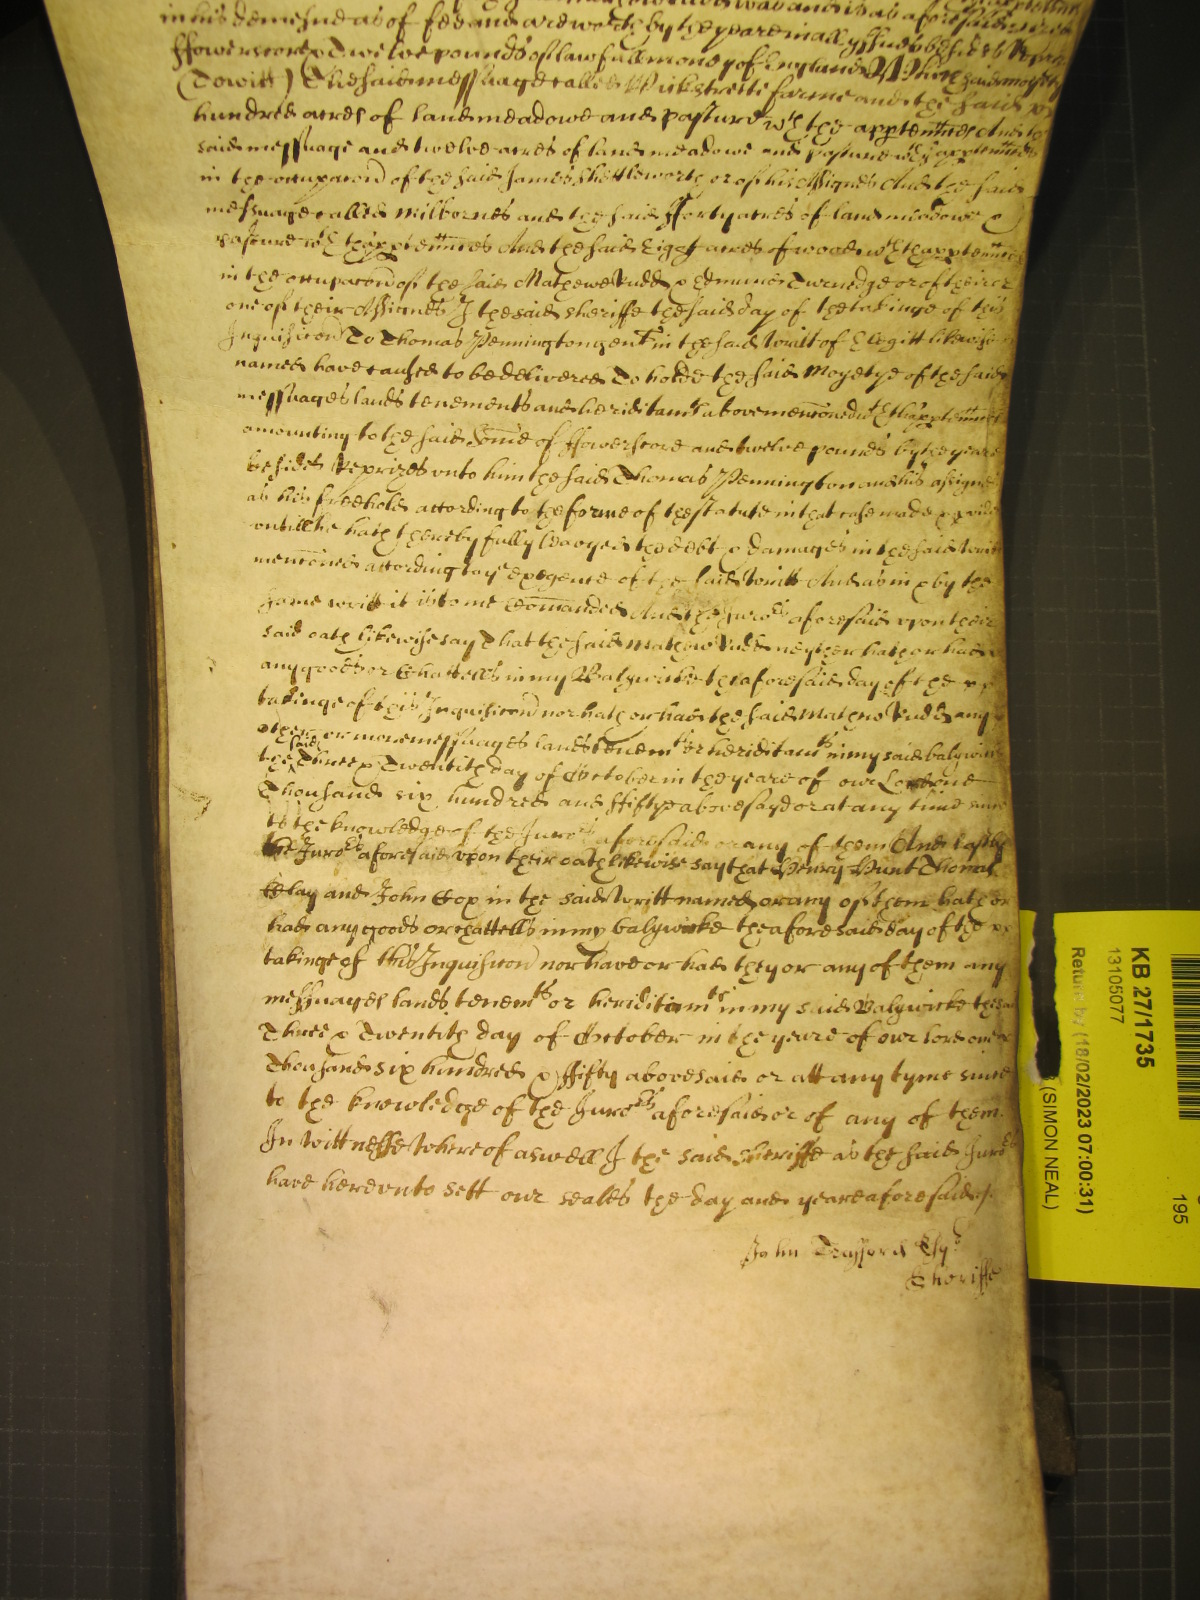 in his demesne as of fee and are worth by the yeare in all yssues besides Reprizes
ffowerscore & Twelve pounds of lawfull money of England Which said moyetye
(Towitt) The said messuage called Wickstreete farme and the said
hundred acres of land meadowe and pasture wth the apptennces And the
said messuage and twelve acres of land meadowe and pasture wth thapptennces
in the occupacon of the said James Shettleworth or of his Assignes And the said
messuage called Milbornes and the said fforty acres of land meadowe &
pasture wth thapptennces And the said Eight acres of wood wth thapptennces
in the occupacon of the said Mathewe Rudd & Edmund Twendge or of their or
one of their Assignes I the said Sheriffe the said day of the takinge of this
Inquisicon To Thomas Pennington gent in the said Writt of Elegitt likewise
named have caused to be delivered To hold the said Moyetye of the said
messuages lands tenements and heriditamts above menconed wth thapptennces
amounting to the said Some of ffowerscore and twelve pounds by the yeare
besides Reprizes unto him the said Thomas Pennington and his assignes
as his freehold according to the forme of the statute in that case made & pvided
untill he hath thereby fully Leavyed the debt & damages in the said Writt
mencioned according to ye exegence of the said Writt And as in & by the
same writt it is to me Comanded And the Juro:rs aforesaid upon their
said oath likewise say That the said Mathew Rudd neyther hath or had
any goods or Chattells in my Balywicke the aforesaid day of the
takinge of this Inquisicon nor hath or had the said Mathew Rudd any
other or more messuages lands tenemts or heriditamts in my said balywicke
the said Three & Twentith day of October in the yeare of our Lord one
Thousand six hundred and ffiftye abovesayd or at any time since
to the knowledge of the Juro:rs aforesaid or any of them And lastly
the Juro:rs aforesaid upon their oath likewise say that Henry Hunt Thomas
Clay and John Cox in the said Writt named or any of them hath or
had any goods or chattells in my balywicke the aforesaid day of the
takinge of this Inquisicon nor have or had they or any of them any
messuages lands tenemts or heriditamts in my said Balywicke the said
Three & Twentith day of October in the yeare of our lord one
Thousand six hundred & ffifty abovesaid or att any tyme since
to the knowledge of the Juro:rs aforesaid or of any of them.
In Wittnesse Whereof aswell I the said Sheriffe as the said Juro:rs
have hereunto sett our seales the day and yeare aforesaid /.
John Trafford Esqr
Sheriffe
KB 27/1735
13105077
Return by (18/02/2023 07:00:31)
(SIMON NEAL)
195